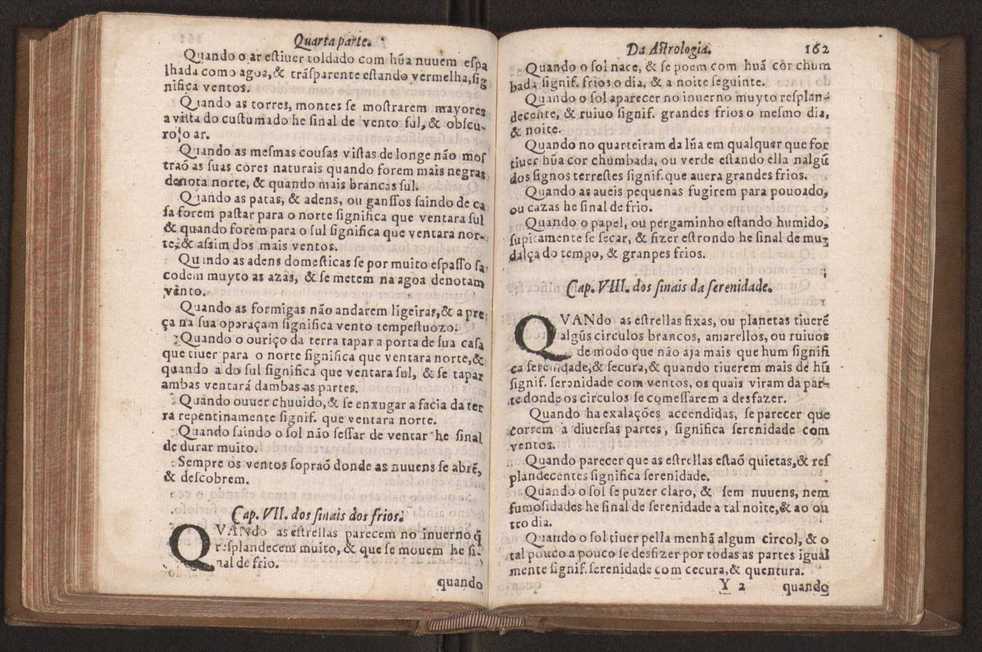 Quarta parte.
Quando o ar estiuer toldado com hũa nuuem espa
lhada como agoa,& trãsparente estando vermelha,sig
nifica ventos.
Quando as torres, montes se mostrarem mayores
a vista do custumado he sinal de vento sul, & obscu-
ro o ar.
Quando as mesmas cousas vistas de longe não mos
traõ as suas cores naturais quando forem mais negras
denota norte, & quando mais brancas sul.
Quando as patas, & adens, ou ganssos saindo de ca
sa forem pastar para o norte significa que ventara sul
& quando forem para o sul significa que ventara nor-
te,& assim dos mais ventos.
Quando as adens domesticas se por muito espasso sa
codem muyto as azas, & se metem na agoa denotam
vento.
Quando as formigas não andarem ligeiras,& a pre
ça na sua oparaçam significa vento tempestuozo.
Quando o ouriço da terra tapar a porta de sua casa
que tiuer para o norte significa que ventara norte,&
quando a do sul significa que ventara sul, & se tapar
ambas ventará dambas as partes.
Quando ouuer chuuido,& se enxugar a facia da ter
ra repentinamente signif. que ventara norte.
Quando saindo o sol não sessar de ventar he sinal
de durar muito.
Sempre os ventos sopraõ donde as nuuens se abrẽ,
& descobrem.
Cap. VII. dos sinais dos frios.
QVANdo as estrellas parecem no inuerno q̃
resplandecem muito, & que se mouem he si-
nal de frio.
quando
Da Astrologia. 162
Quando o sol nace, & se poem com huã còr chum
bada signif. frios o dia, & a noite seguinte.
Quando o sol aparecer no inuerno muyto resplan-
decente, & ruiuo signif. grandes frios o mesmo dia,
& noite.
Quando no quarteiram da lũa em qualquer que for
tiuer hũa cor chumbada, ou verde estando ella nalgũ
dos signos terrestes signif.que auera grandes frios.
Quando as aueis pequenas fugirem para pouoado,
ou cazas he sinal de frio.
Quando o papel, ou pergaminho estando humido,
supitamente se secar, & fizer estrondo he sinal de mu-
dãlça do tempo, & granpes frios.
Cap. VIII. dos sinais da serenidade.
QVANdo as estrellas fixas, ou planetas tiuerẽ
algũs circulos brancos, amarellos, ou ruiuos
de modo que não aja mais que hum signifi
ca serenidade,& secura,& quando tiuerem mais de hũ
signif. serenidade com ventos, os quais viram da par-
te donde os circulos se comessarem a desfazer.
Quando ha exalações accendidas, se parecer que
correm a diuersas partes, significa serenidade com
ventos.
Quando parecer que as estrellas estaõ quietas,& res
plandecentes significa serenidade.
Quando o sol se puzer claro, & sem nuuens, nem
fumosidades he sinal de serenidade a tal noite,& ao ou
tro dia.
Quando o sol tiuer pella menhã algum circol, & o
tal pouco a pouco se desfizer por todas as partes igual
mente signif.serenidade com cecura,& quentura.
Y 2 quando